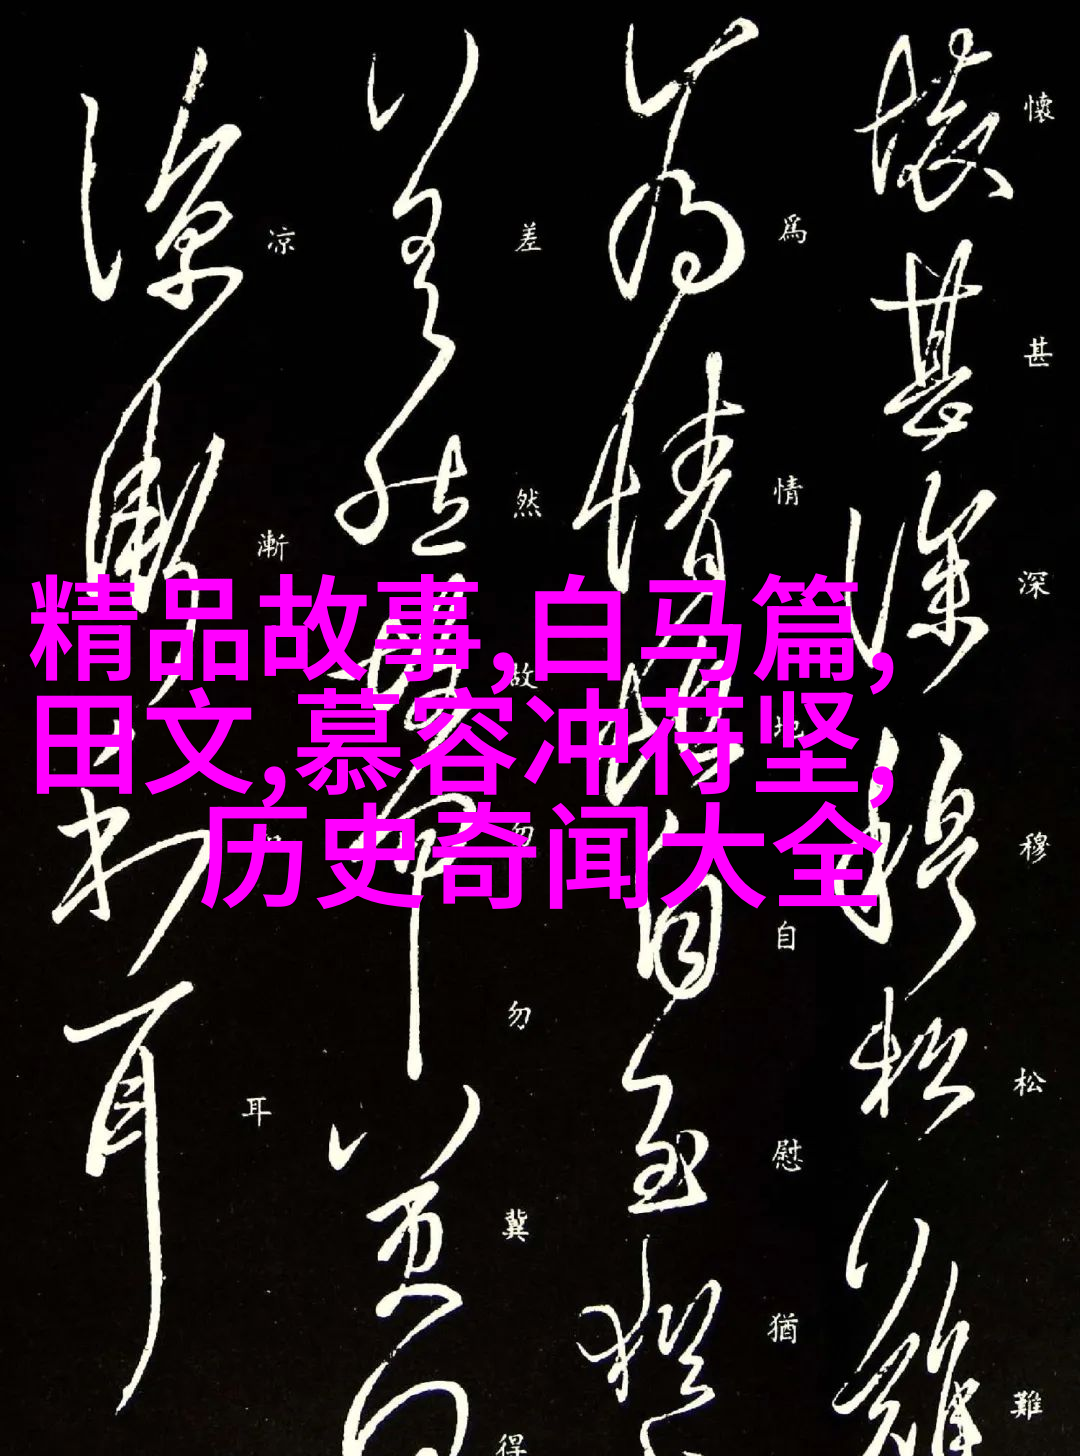 懷甚深穆松難
為情地自慰猶
差然故勿勿冀得
凉漸耳
精品故事,白马篇,
田文,慕容冲苻坚,
历史奇闻大全